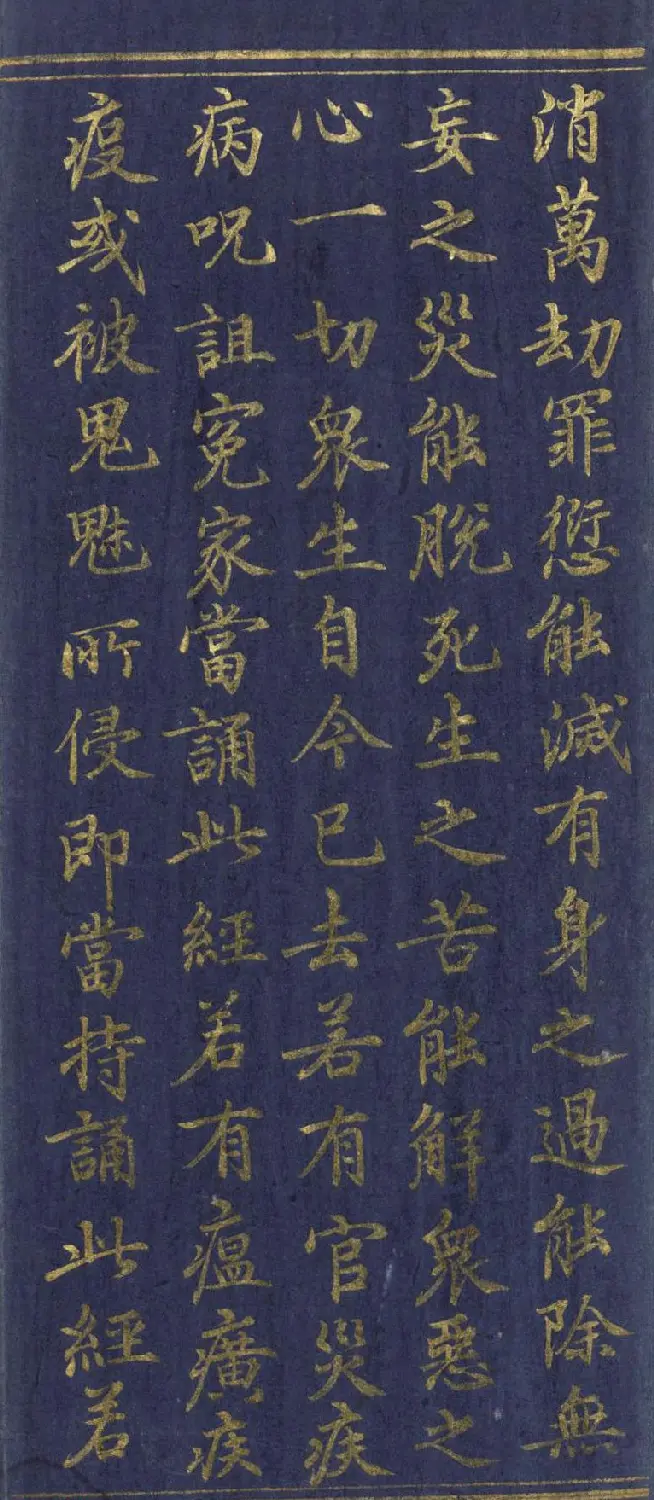 消萬劫罪愆能滅有身之過能除無
妄之災能脫死生之苦能解衆惡之
心一切衆生自今已去若有官災疾
病呪詛寃家當誦此經若有瘟癀疾
疫或被鬼魅所侵即當持誦此經若